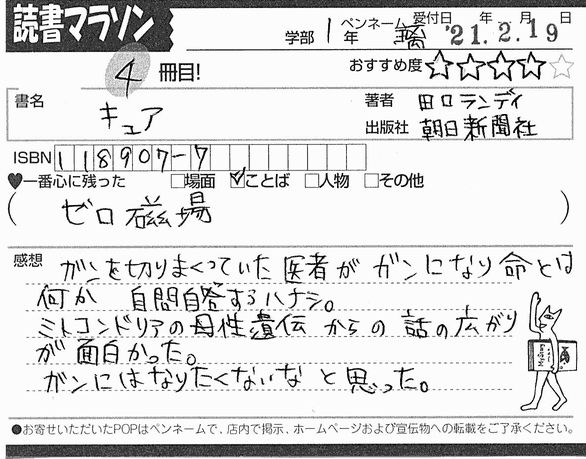 読書マラソン
学部 1年 ペンネーム 受付日 年 月 日
'21.2.19
4 冊目! おすすめ度 ★★★★☆
書名 キュア 著者 田口ランディ
出版社 朝日新聞社
ISBN 118907-7
♥一番心に残った □場面 ☑ことば □人物 □その他
(ゼロ磁場)
感想 ガンを切りまくっていた医者がガンになり命とは
何か 自問自答するハナシ。
ミトコンドリアの母性遺伝からの話の広がり
が面白かった。
ガンにはなりたくないなと思った。
●お寄せいただいたPOPはペンネームで、店内で掲示、ホームページおよび宣伝物への転載をご了承ください。